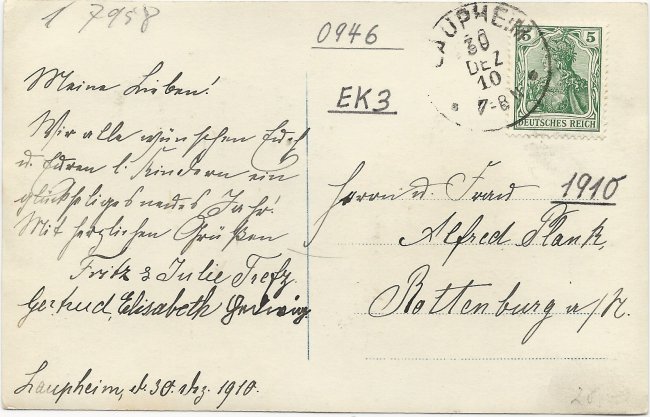 1 7958
0946
EK3
LAUPHEIM
30
DEZ
10
7-8 N
5
5
DEUTSCHES REICH
Meine Lieben!
Wir alle wünschen Euch
u. Euren l. Kindern ein
glückseliges neues Jahr.
Mit herzlichen Grüßen
Fritz & Julie Trefz
Gertrud, Elisabeth Hedwig.
Laupheim, d. 30. Dez. 1910.
Herrn u. Frau
1910
Alfred Plank,
Rottenburg a/N.